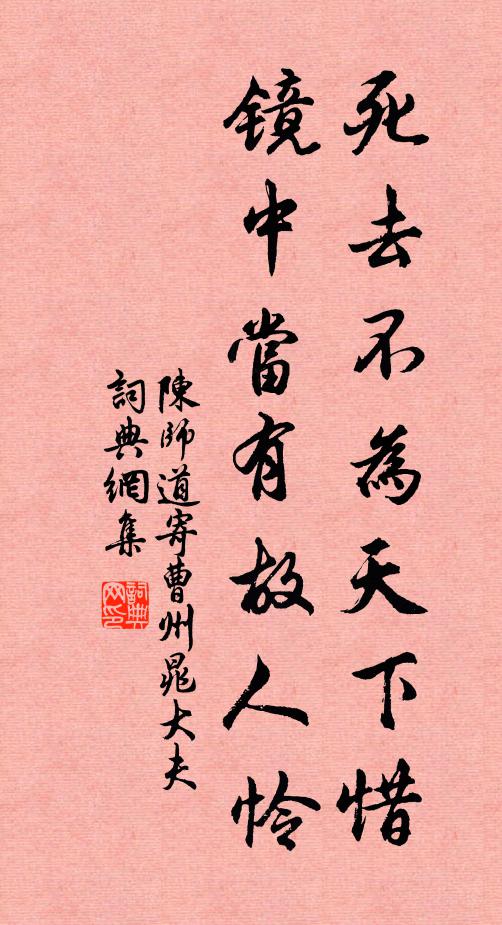 死去不為天下惜
镜中當有故人怜
陳師道寄曹州晁大夫
詞典網集
詞典网印